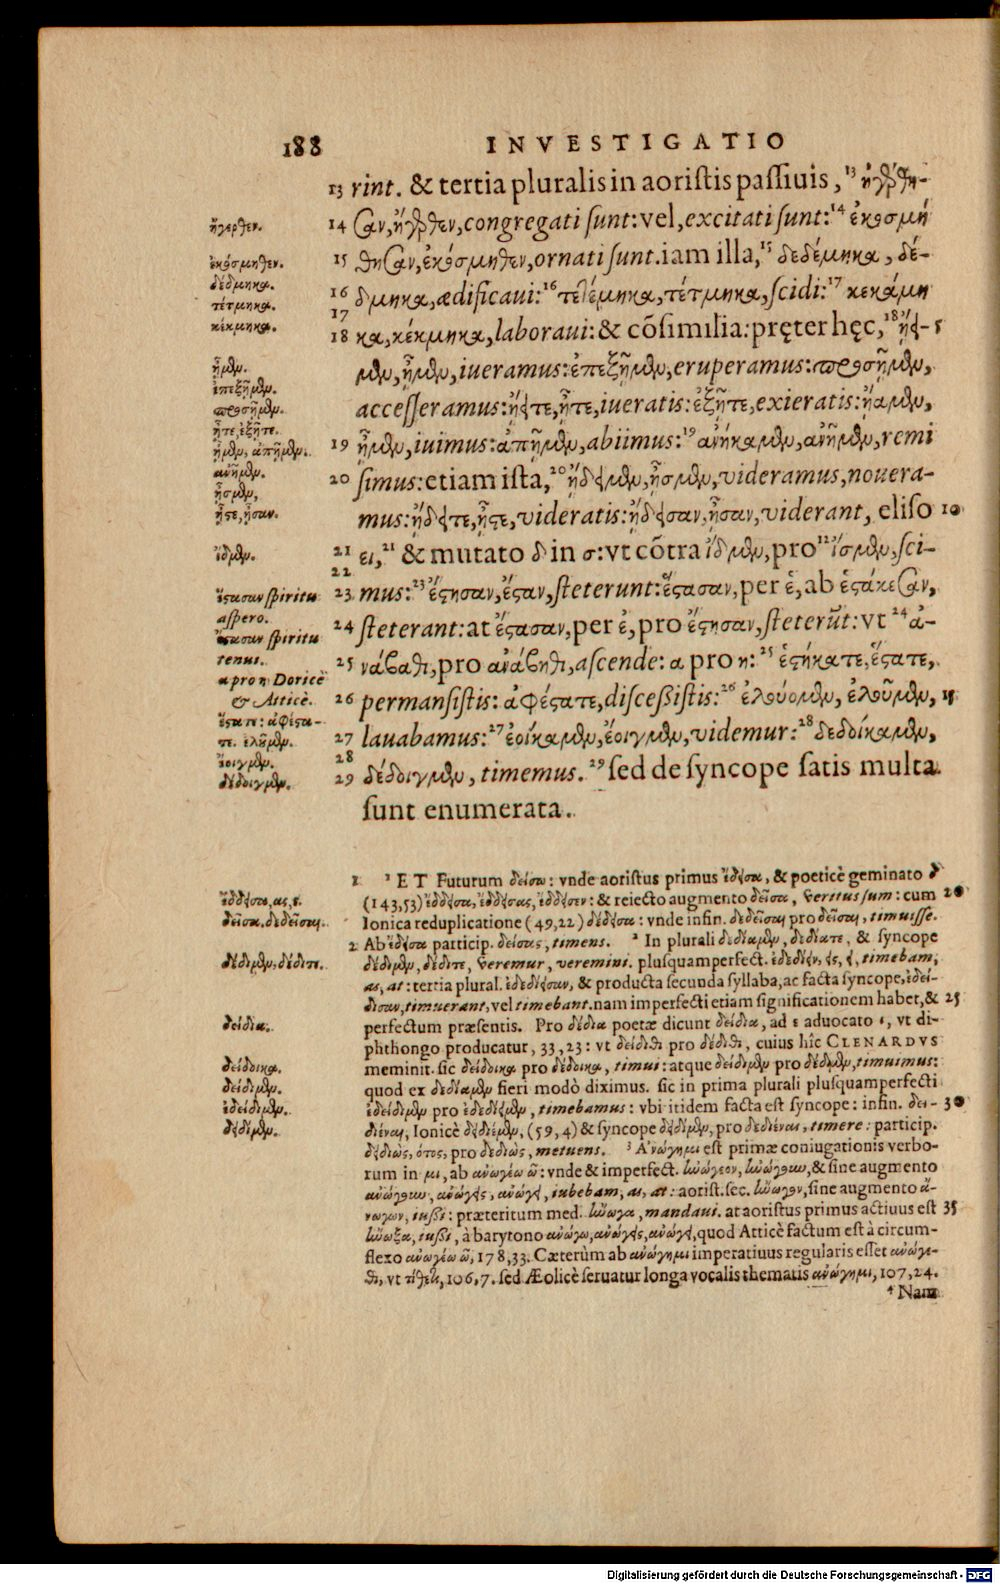 188 INVESTIGATIO
13 rint. & tertia pluralis in aoristis passiuis, 13 ἠγέρθη-
ἤγερθεν. 14 σαν, ἤγερθεν, congregati sunt: vel, excitati sunt: 14 ἐκοσμή
ἐκόσμηθεν. 15 θησαν, ἐκόσμηθεν, ornati sunt. iam illa, 15 δεδέμηκα, δέ-
δέδμηκα. 16 δμηκα, ædificaui: 16 τετέμηκα, τέτμηκα, scidi: 17 κεκάμη
τέτμηκα. 17
κέκμηκα. 18 κα, κέκμηκα, laboraui: & cõsimilia: pręter hęc, 18 ἤει- 5
ᾖμεν. μεν, ᾖμεν, iueramus: ἐπεξῇμεν, eruperamus: προσῇμεν,
ἐπεξῇμεν.
προσῇμεν. accesseramus: ἤειτε, ᾖτε, iueratis: ἐξῇτε, exieratis: ἤαμεν,
ᾖτε, ἐξῇτε.
ᾖμεν, ἀπῇμεν. 19 ᾖμεν, iuimus: ἀπῇμεν, abiimus: 19 ἀνήκαμεν, ἀνῇμεν, remi
ἀνῇμεν. 20 simus: etiam ista, 20 ᾔδειμεν, ᾖσμεν, videramus, nouera-
ᾖσμεν,
ᾖστε, ᾖσαν. mus: ᾔδειτε, ᾖστε, videratis: ᾔδεισαν, ᾖσαν, viderant, eliso 10
ἴδμεν. 21 ει, 21 & mutato δ in σ: vt cõtra ἴδμεν, pro 22 ἴσμεν, sci-
22
ἕστασαν spiritu 23 mus: 23 ἔστησαν, ἔσταν, steterunt: ἕστασαν, per ἑ, ab ἑστάκεσαν,
aspero.
ἔστασαν spiritu 24 steterant: at ἔστασαν, per ἐ, pro ἔστησαν, steterũt: vt 24 ἀ-
tenui. 25 νάβαθι, pro ἀνάβηθι, ascende: α pro η: 25 ἑστήκατε, ἕστατε,
α pro η Doricè
& Atticè. 26 permansistis: ἀφέστατε, discessistis: 26 ἐλούομεν, ἐλοῦμεν, 15
ἕστατε: ἀφέστα-
τε. ἐλοῦμεν. 27 lauabamus: 27 ἐοίκαμεν, ἔοιγμεν, videmur: 28 δεδοίκαμεν,
ἔοιγμεν. 28
δέδοιγμεν. 29 δέδοιγμεν, timemus. 29 sed de syncope satis multa
sunt enumerata.
1 1 ET Futurum δείσω: vnde aoristus primus ἔδεισα, & poeticè geminato δ
ἔδδεισα, ας, ε. (143,53) ἔδδεισα, ἔδδεισας, ἔδδεισεν: & reiecto augmento δεῖσα, veritus sum: cum 20
δεῖσα. δεδεῖσαι. Ionica reduplicatione (49,22) δέδεισα: vnde infin. δεδεῖσαι pro δεῖσαι, timuisse.
2 Ab ἔδεισα particip. δείσας, timens. 2 In plurali δεδίαμεν, δεδίατε, & syncope
δέδιμεν, δέδιτε. δέδιμεν, δέδιτε, veremur, veremini. plusquamperfect. ἐδεδίειν, εις, ει, timebam,
as, at: tertia plural. ἐδεδίεισαν, & producta secunda syllaba, ac facta syncope, ἐδεί-
δισαν, timuerant, vel timebant. nam imperfecti etiam significationem habet, & 25
δείδια. perfectum præsentis. Pro δέδια poetæ dicunt δείδια, ad ε aduocato ι, vt di-
phthongo producatur, 33,23: vt δείδιθι pro δέδιθι, cuius hîc CLENARDVS
δείδοικα. meminit. sic δείδοικα pro δέδοικα, timui: atque δείδιμεν pro δέδιμεν, timuimus:
δείδιμεν. quod ex δεδίαμεν fieri modò diximus. sic in prima plurali plusquamperfecti
ἐδείδιμεν. ἐδείδιμεν pro ἐδεδίειμεν, timebamus: vbi itidem facta est syncope: infin. δει- 30
δειδίμεν. διέναι, Ionicè δειδιέμεν, (59,4) & syncope δειδίμεν, pro δεδιέναι, timere: particip.
δειδιὼς, ότος, pro δεδιὼς, metuens. 3 Ἀνώγημι est primæ coniugationis verbo-
rum in μι, ab ἀνωγέω ῶ: vnde & imperfect. ἠνώγεον, ἠνώγουν, & sine augmento
ἀνώγουν, ἀνώγεις, ἀνώγει, iubebam, as, at: aorist. sec. ἤνωγον, sine augmento ἄ-
νωγον, iussi: præteritum med. ἤνωγα, mandaui. at aoristus primus actiuus est 35
ἤνωξα, iussi, à barytono ἀνώγω, ἀνώγεις, ἀνώγει, quod Atticè factum est à circum-
flexo ἀνωγέω ῶ, 178,33. Cæterùm ab ἀνώγημι imperatiuus regularis esset ἀνώγε-
θι, vt τίθετι, 106,7. sed Æolicè seruatur longa vocalis thematis ἀνώγημι, 107,24.
4 Nam
Digitalisierung gefördert durch die Deutsche Forschungsgemeinschaft - DFG